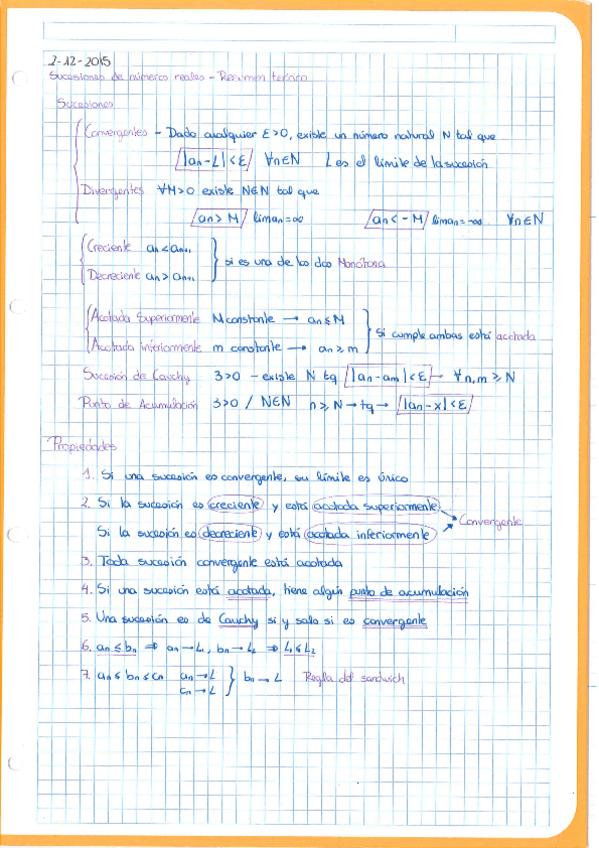 2-12-2015
Sucesiones de números reales - Resumen teórico
Sucesiones
Convergentes - Dado cualquier ε>0, existe un número natural N tal que
|an-L|<ε ∀n∈N L es el límite de la sucesión
Divergentes ∀M>0 existe N∈N tal que
an>M liman=∞ an<-M liman=-∞ ∀n∈N
Creciente an<an+1
Decreciente an>an+1 } si es una de las dos Monótona
Acotada Superiormente M constante → an≤M
Acotada inferiormente m constante → an≥m } Si cumple ambas está acotada
Sucesión de Cauchy 3>0 - existe N tq |an-am|<ε → ∀n,m≥N
Punto de Acumulación 3>0 / N∈N n≥N→tq→ |an-x|<ε
Propiedades
1. Si una sucesión es convergente, su límite es único
2. Si la sucesión es creciente y está acotada superiormente
Si la sucesión es decreciente y está acotada inferiormente → Convergente
3. Toda sucesión convergente está acotada
4. Si una sucesión está acotada, tiene algún punto de acumulación
5. Una sucesión es de Cauchy si y solo si es convergente
6. an≤bn ⇒ an→L1, bn→L2 ⇒ L1≤L2
7. an≤bn≤cn an→L cn→L } bn→L Regla del sandwich